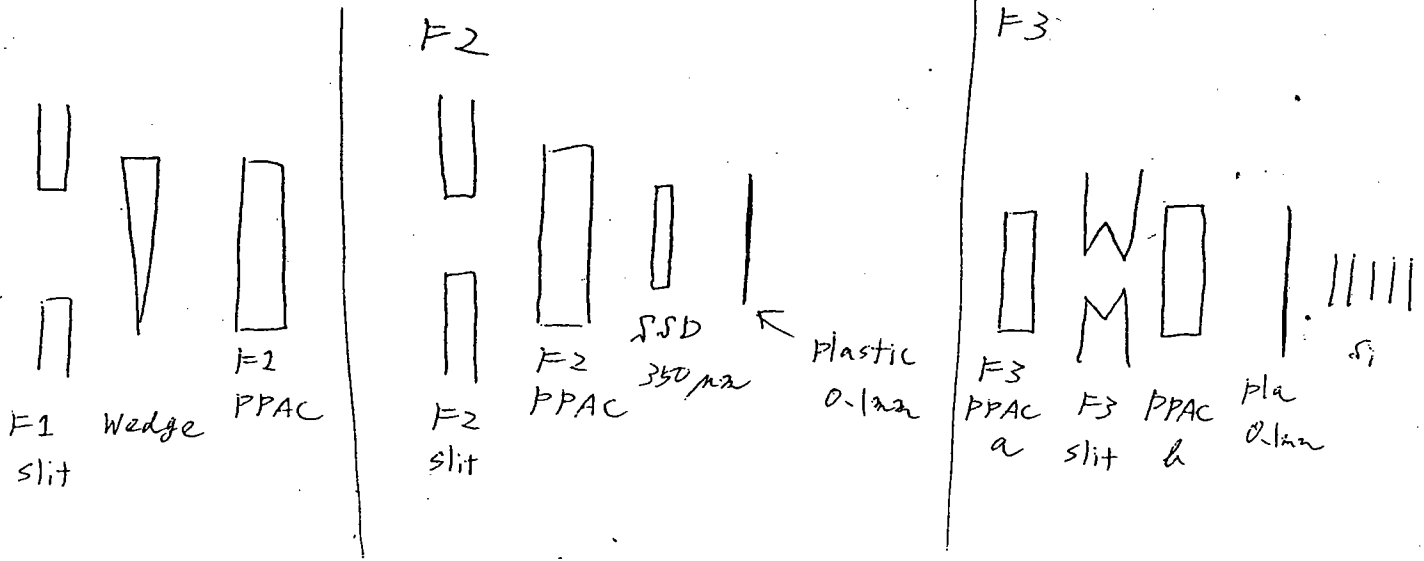 F2
F3
F1
slit
Wedge
F1
PPAC
F2
slit
F2
PPAC
SSD
350 μm
plastic
0.1mm
F3
PPAC
a
F3
slit
PPAC
b
pla
0.1mm
Si